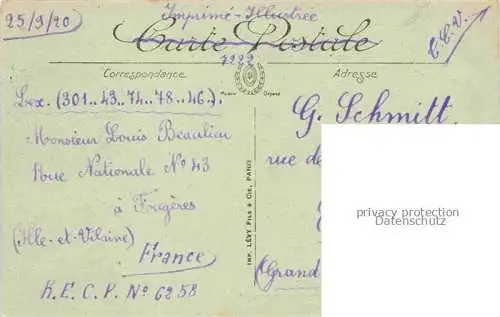 25/9/20
Imprimé-Illustrée
Carte Postale
T.C.V.
7222
Correspondance
Adresse
Modèle Déposé
Lex. (301..43..74..78..46.).
Monsieur Louis Beaulieu
Rue Nationale Nº 43
à Fougères
(Ille-et-Vilaine)
France
R.E.C.P. Nº 6258
IMP. LÉVY FILS & CIE, PARIS
G. Schmitt.
rue de
(Grand
privacy protection
Datenschutz